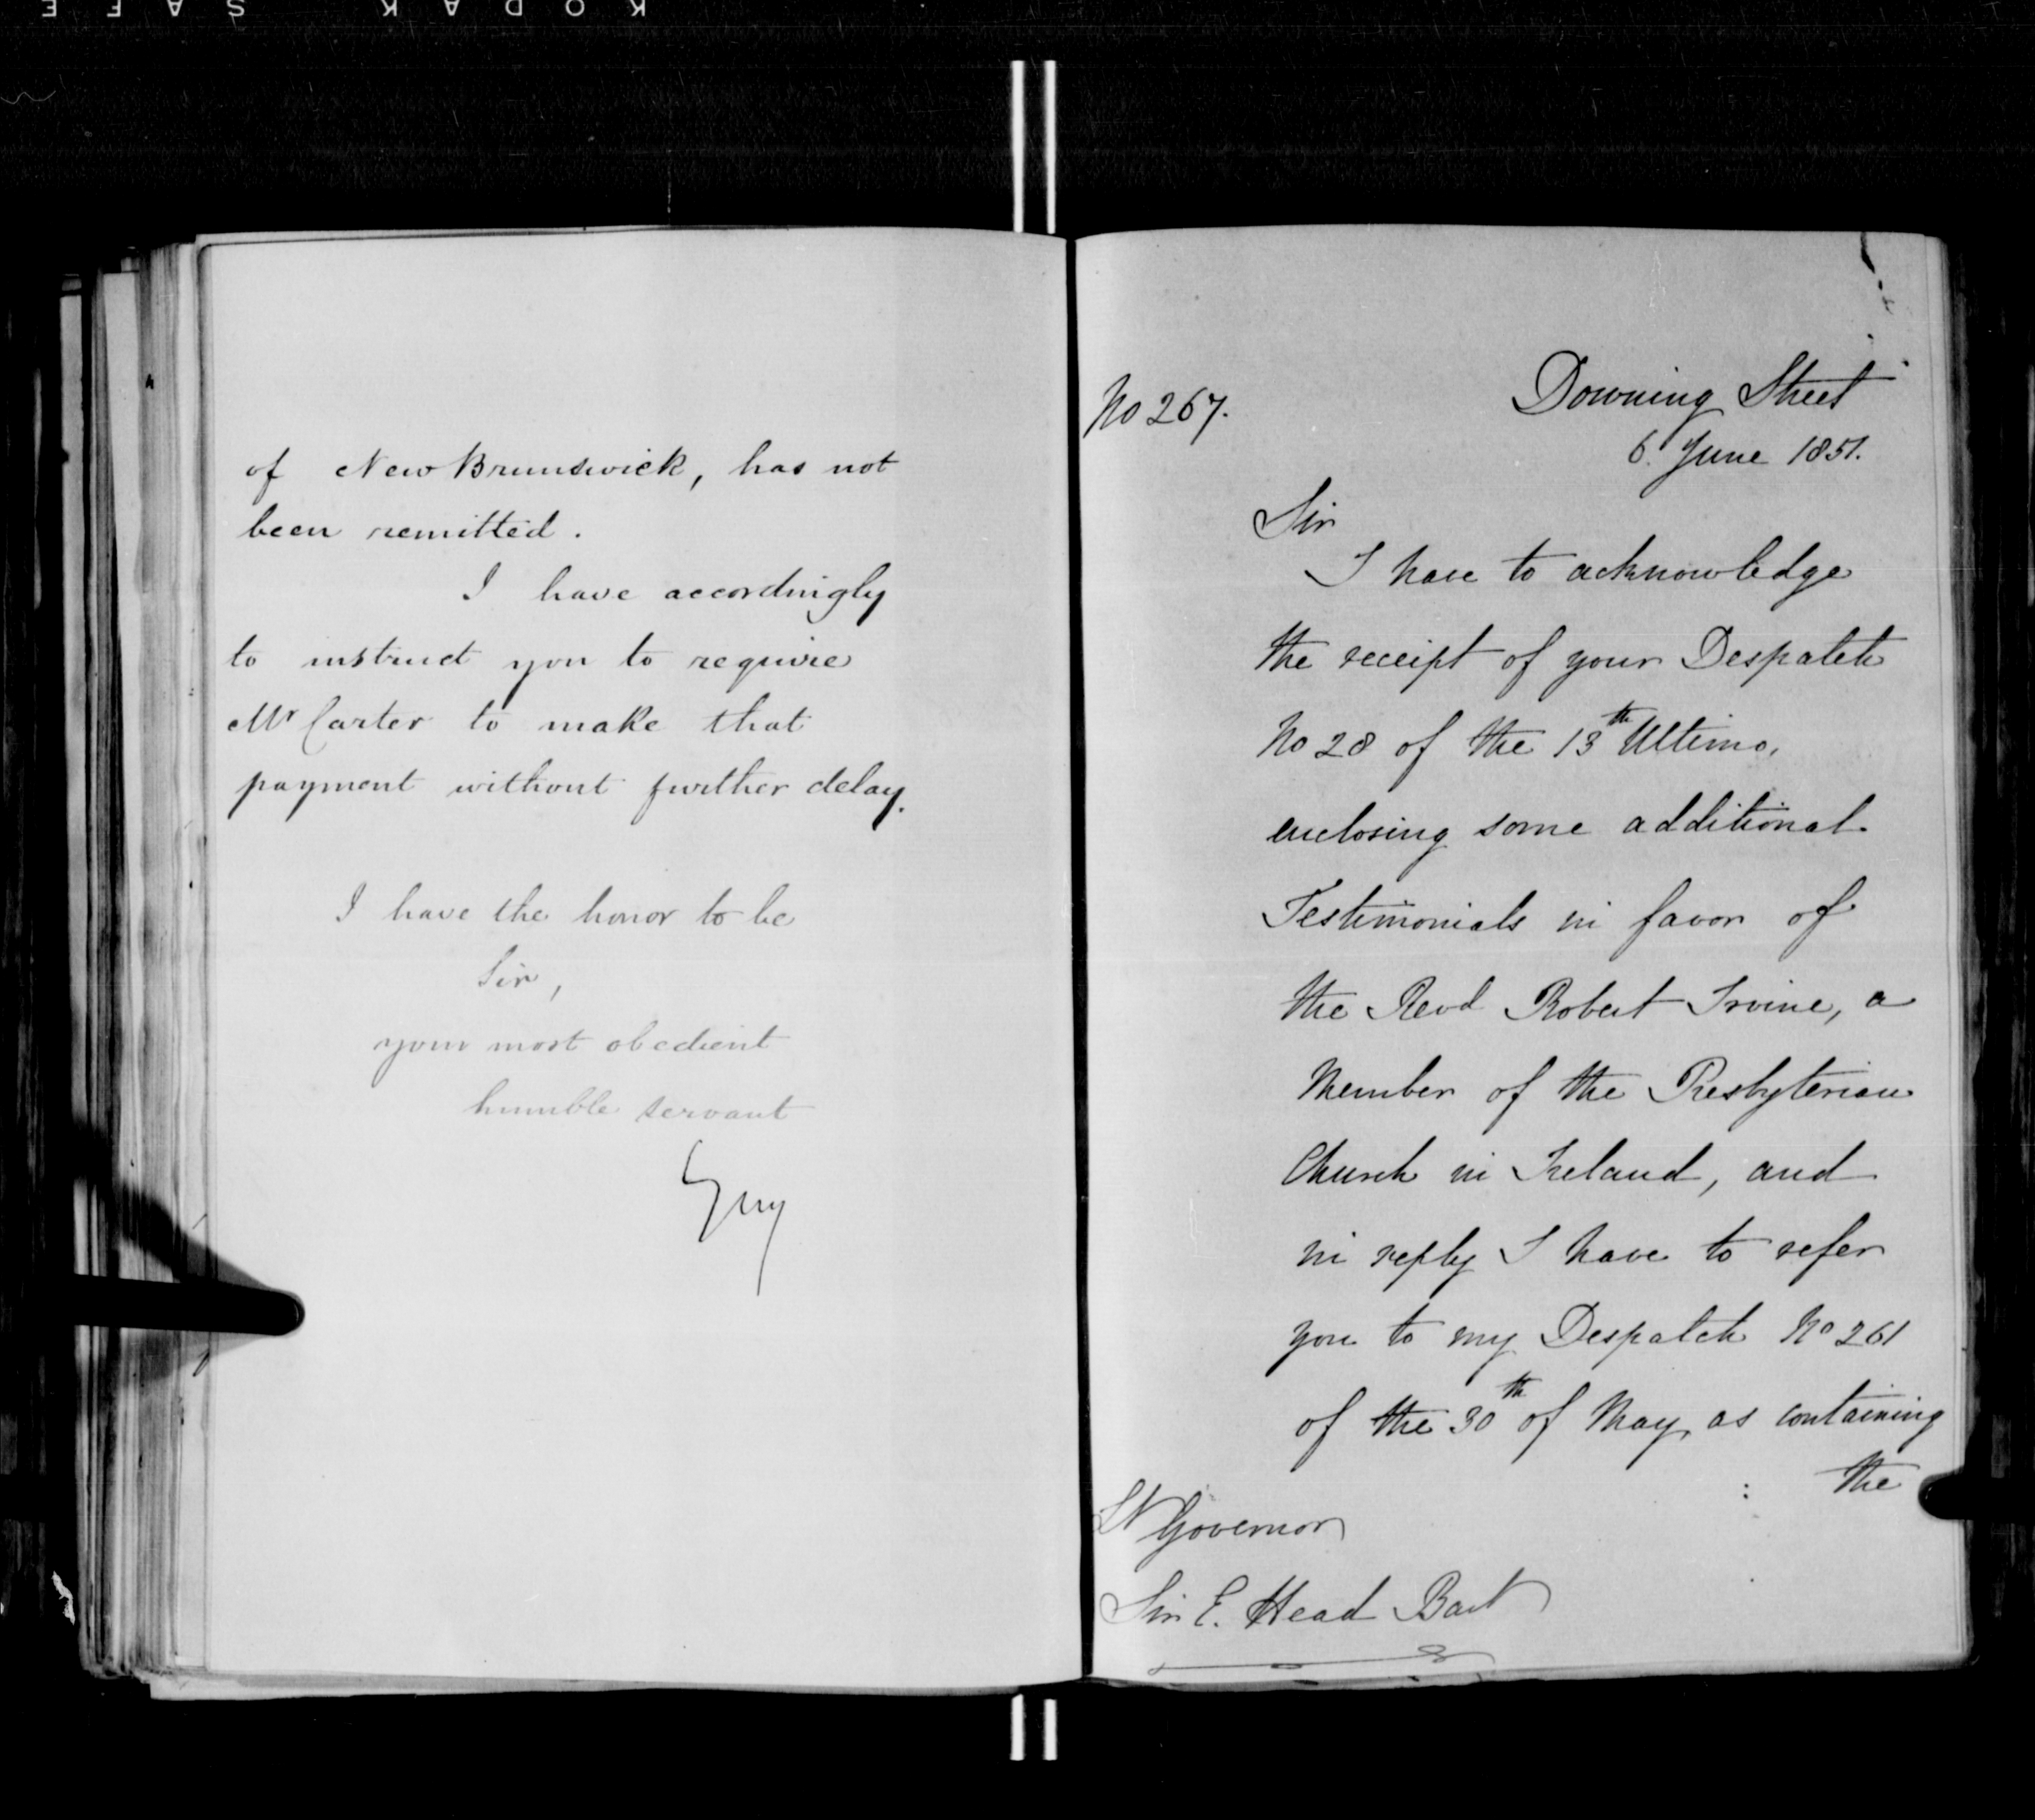 KODAK SAFE
of New Brunswick, has not
been remitted.
I have accordingly
to instruct you to require
Mr Carter to make that
payment without further delay.
I have the honor to be
Sir,
your most obedient
humble servant
Grey
No 267.
Downing Street
6. June 1851.
Sir
I have to acknowledge
the receipt of your Despatch
No 28 of the 13th Ultimo,
enclosing some additional
Testimonials in favor of
the Revd Robert Irvine, a
Member of the Presbyterian
Church in Ireland, and
in reply I have to refer
you to my Despatch No 261
of the 30th of May, as containing
: the
Lt Governor
Sir E. Head Bart